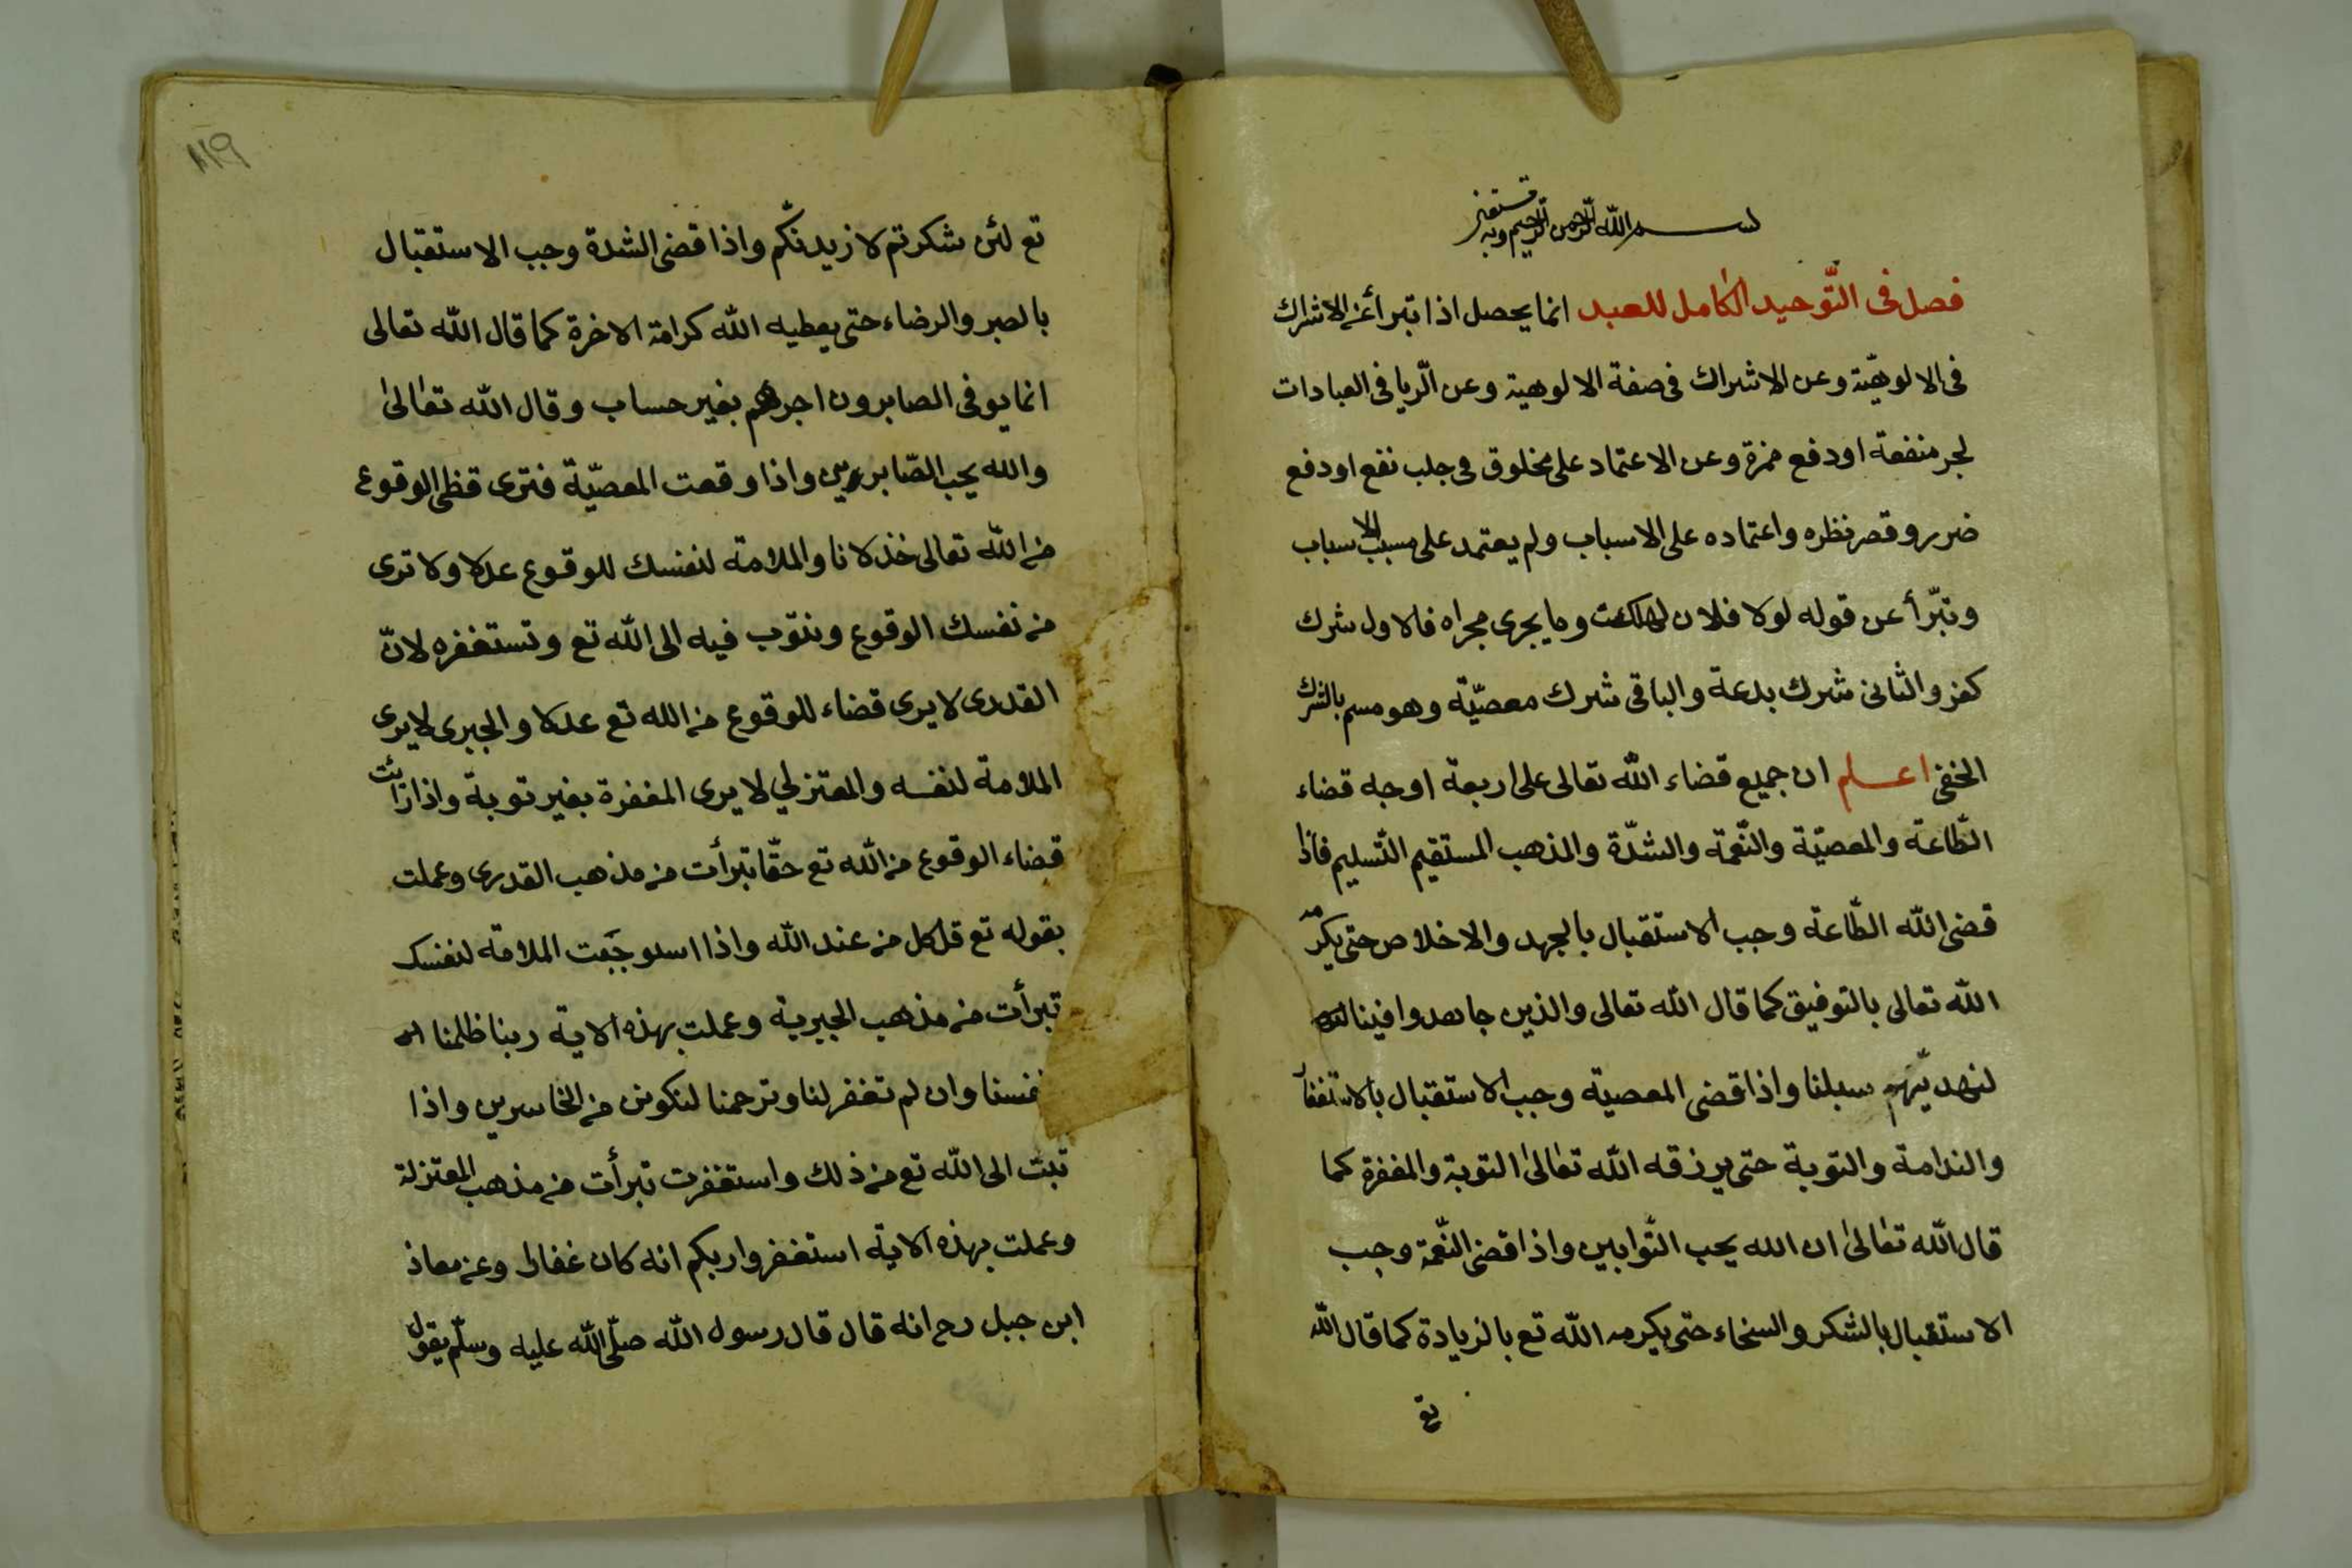 بسم الله الرحمن الرحيم وبه نستعين
فصل فى التّوحيد الكامل للعبد انما يحصل اذا تبرأ عن الاشراك
فى الالوهيّة وعن الاشراك فى صفة الالوهية وعن الّريا فى العبادات
لجر منفعة او دفع مضرة وعن الاعتماد على مخلوق فى جلب نفع او دفع
ضرر وقصر نظره واعتماده على الاسباب ولم يعتمد على مسبب الاسباب
وتبّرأ عن قوله لولا فلان لهلكت وما يجرى مجراه فالاول شرك
كفر والثانى شرك بدعة والباقى شرك معصيّة وهو مسم بالشرك
الخفى اعلم ان جميع قضاء الله تعالى على اربعة اوجه قضاء
الطّاعة والمعصيّة والنّعمة والشدّة والمذهب المستقيم التّسليم فاذا
قضى الله الطّاعة وجب الاستقبال بالجهد والاخلاص حتى يكرمه
الله تعالى بالتوفيق كما قال الله تعالى والذين جاهدوا فينا
لنهدينّهم سبلنا واذا قضى المعصية وجب الاستقبال بالاستغفار
والندامة والتوبة حتى يرزقه الله تعالى التوبة والمغفرة كما
قال الله تعالى ان الله يحب التّوابين واذا قضى النّعمة وجب
الاستقبال بالشكر والسخاء حتى يكرمه الله تع بالزيادة كما قال الله
تع
١١٩
تع لئن شكرتم لازيدنّكم واذا قضى الشدة وجب الاستقبال
بالصبر والرضاء حتى يعطيه الله كرامة الاخرة كما قال الله تعالى
انما يوفى الصابرون اجرهم بغير حساب وقال الله تعالى
والله يحب الصّابرين واذا وقعت المعصيّة فترى قظى الوقوع
من الله تعالى خذلانا والملامة لنفسك للوقوع عدلا ولا ترى
من نفسك الوقوع وبتوب فيه الى الله تع وتستغفره لانّ
القدرى لا يرى قضاء للوقوع من الله تع عدلا والجبرى لا يرى
الملامة لنفسه والمعتزلي لا يرى المغفرة بغير توبة واذا رأئت
قضاء الوقوع من الله تع حقّا تبرأت من مذهب القدرى وعملت
بقوله تع قل كل من عند الله واذا استوجَبت الملامة لنفسك
تبرأت من مذهب الجبرية وعملت بهذه الاية ربنا ظلمنا ا
نفسنا وان لم تغفر لنا وترحمنا لنكونن من الخاسرين واذا
تبت الى الله تع من ذلك واستغفرت تبرأت من مذهب المعتزلة
وعملت بهذه الاية استغفروا ربكم انه كان غفارا وعن معاذ
ابن جبل رح انه قال قال رسول الله صلّى الله عليه وسلّم يقول